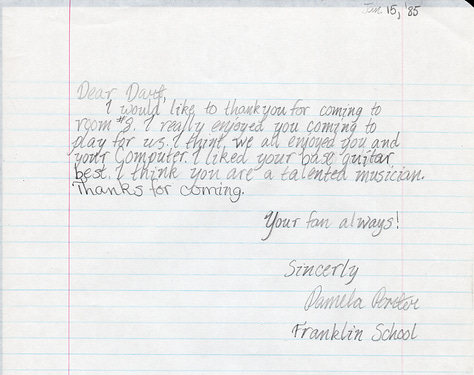 Jun 15, '85
Dear Dave,
I would like to thankyou for coming to
room #3. I really enjoyed you coming to
play for us. I think, we all enjoyed you and
your Computer. I liked your base guitar
best. I think you are a talented musician.
Thanks for coming.
Your fan always!
Sincerly
Pamela Porter
Franklin School